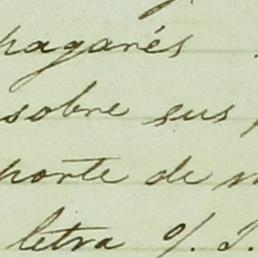 pagarés
sobre sus
porte de
letra o/. I.